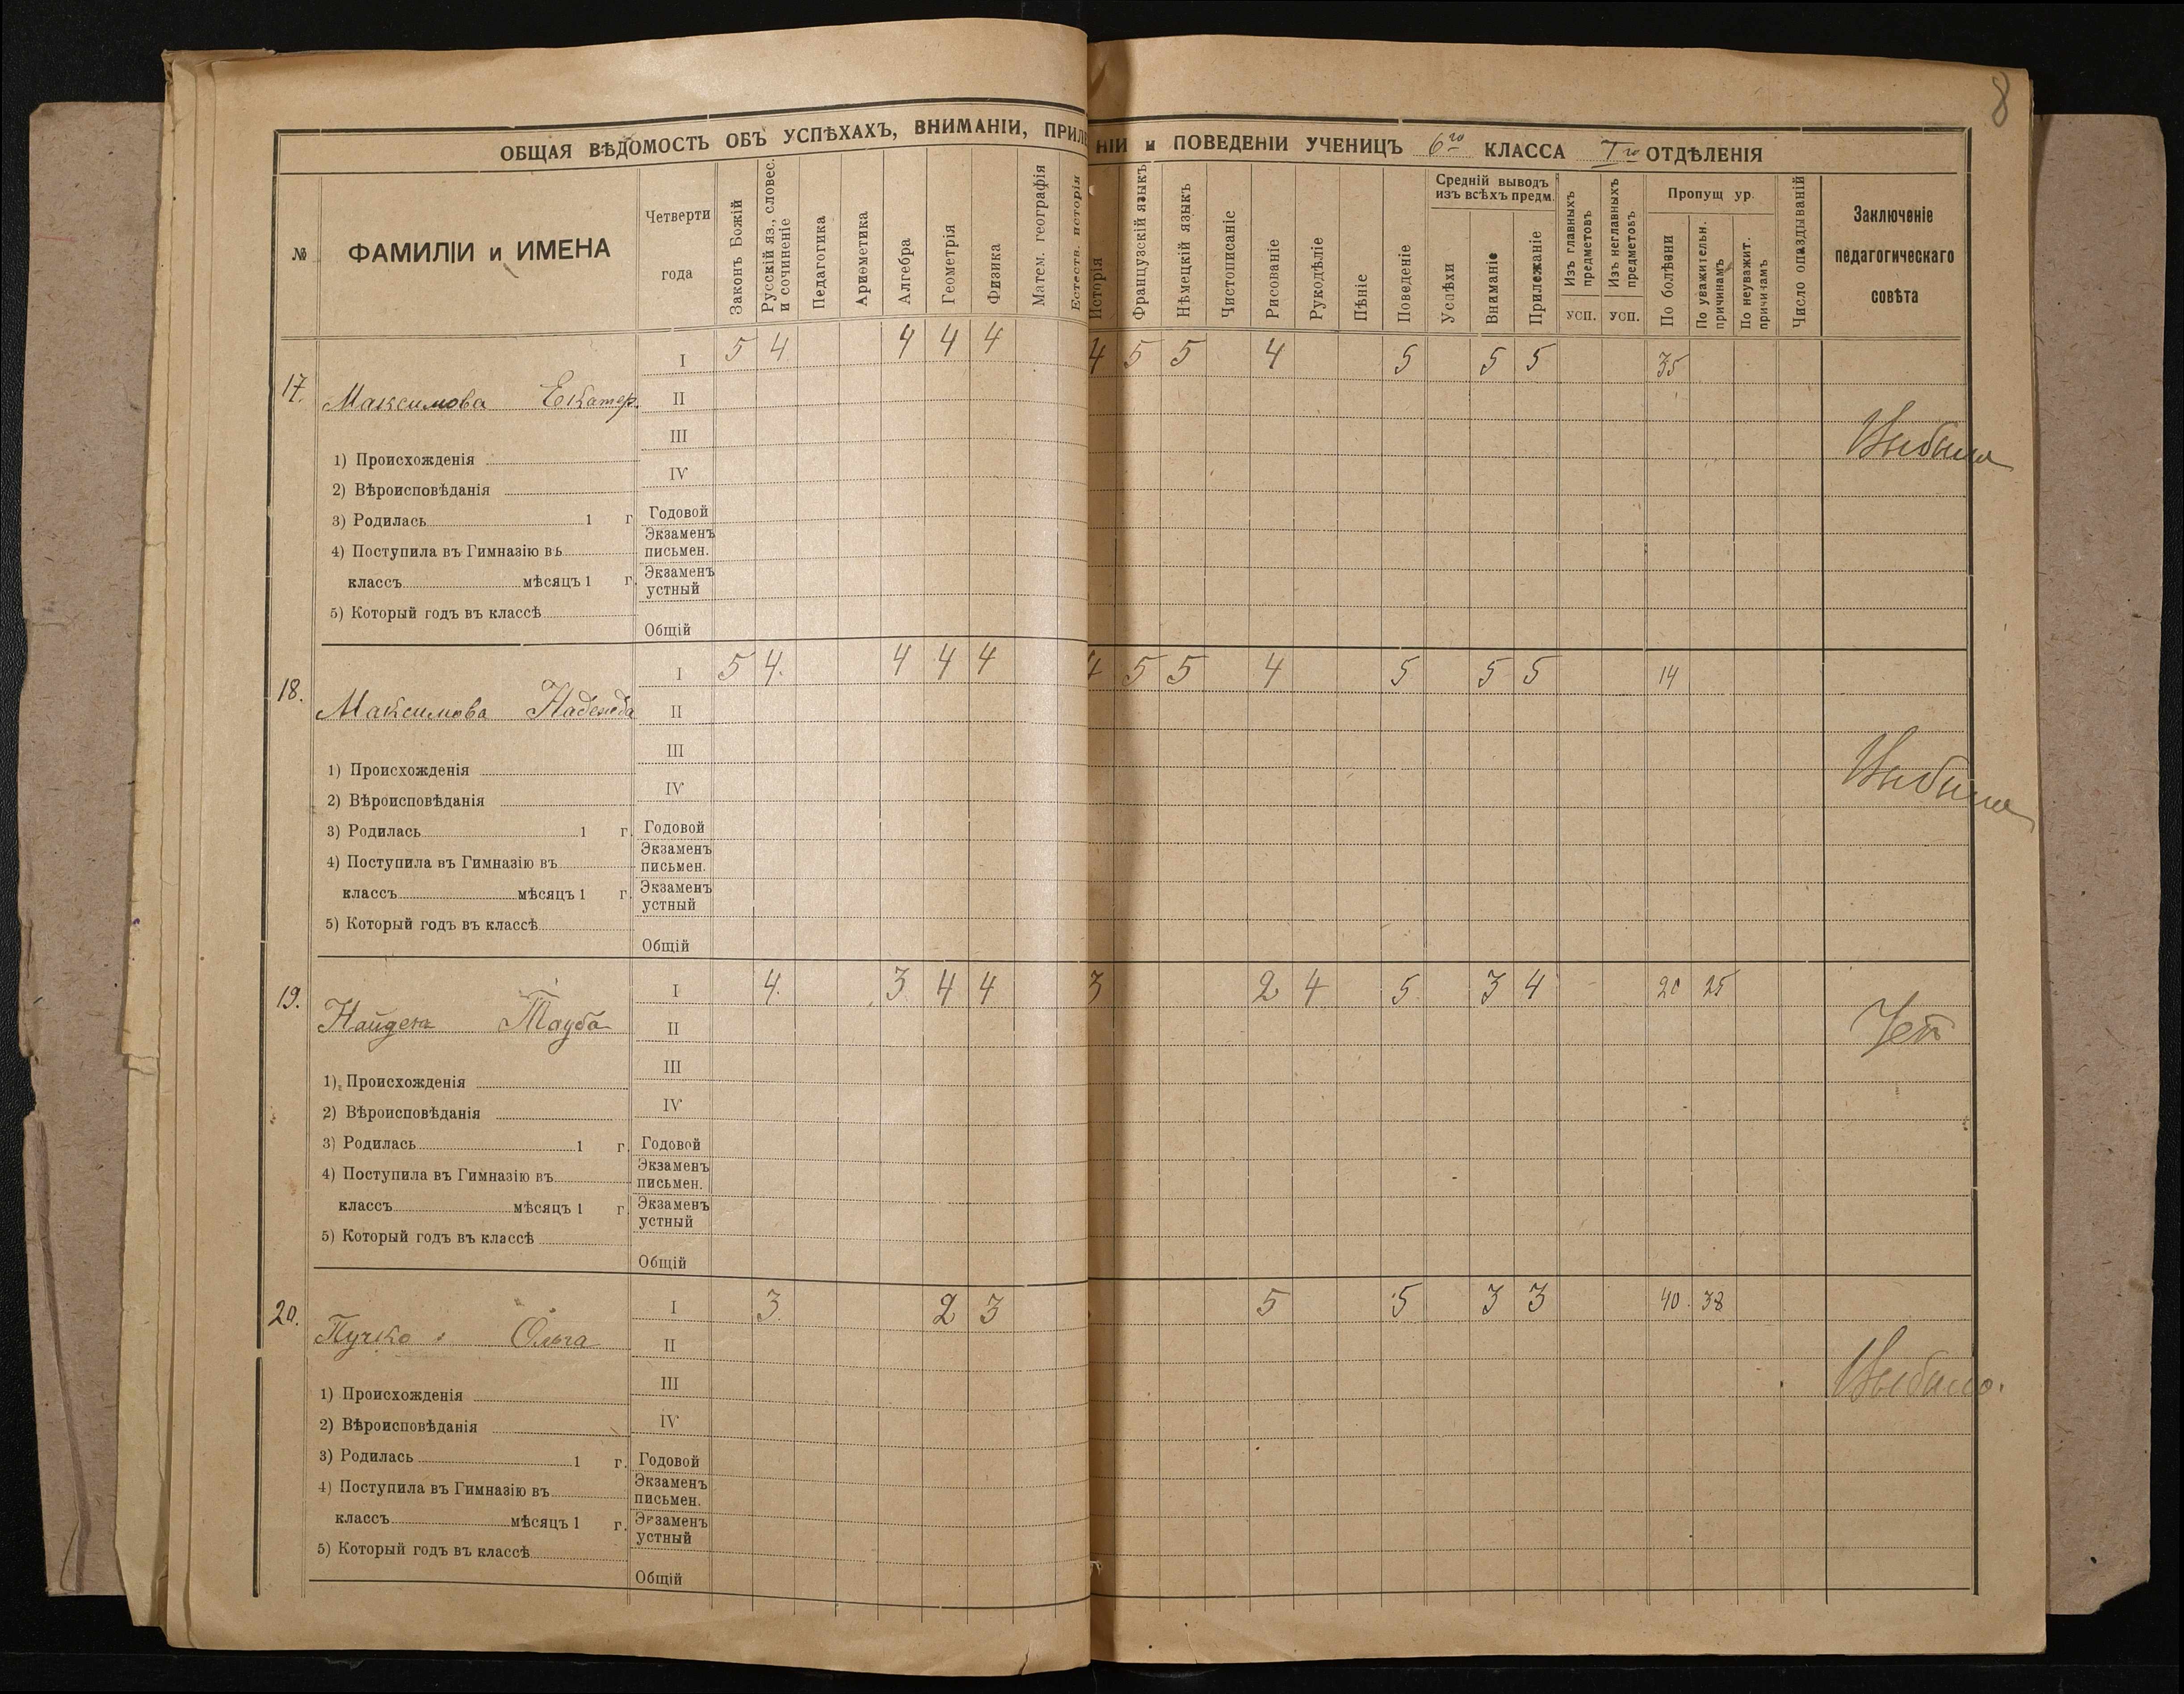 8
ОБЩАЯ ВѢДОМОСТЬ ОБЪ УСПѢХАХЪ, ВНИМАНІИ, ПРИЛЕ НІИ и ПОВЕДЕНІИ УЧЕНИЦЪ 6го КЛАССА Iго ОТДѢЛЕНІЯ
№
ФАМИЛІИ и ИМЕНА
Четверти
года
Законъ Божій
Русскій яз., словес.
и сочиненіе
Педагогика
Ариѳметика
Алгебра
Геометрія
Физика
Матем. географія
Естеств. исторія
Исторія
Французскій языкъ
Нѣмецкій языкъ
Чистописаніе
Рисованіе
Рукодѣліе
Пѣніе
Поведеніе
Средній выводъ
изъ всѣхъ предм.
Успѣхи
Вниманіе
Прилежаніе
Изъ главныхъ
предметовъ
УСП.
Изъ неглавныхъ
предметовъ
УСП.
Пропущ ур.
По болѣзни
По уважительн.
причинамъ
По неуважит.
причинамъ
Число опаздываній
Заключеніе
педагогическаго
совѣта
17.
Максимова Екатер.
I 5 4 4 4 4 4 5 5 4 5 5 5 35
II
III
IV
Годовой
Экзаменъ
письмен.
Экзаменъ
устный
Общій
1) Происхожденія
2) Вѣроисповѣданія
3) Родилась 1 г
4) Поступила въ Гимназію въ
классъ мѣсяцъ 1 г.
5) Который годъ въ классѣ
Выбыла
18.
Максимова Надежда
I 5 4. 4 4 4 4 5 5 4 5 5 5 14
II
III
IV
Годовой
Экзаменъ
письмен.
Экзаменъ
устный
Общій
1) Происхожденія
2) Вѣроисповѣданія
3) Родилась 1 г.
4) Поступила въ Гимназію въ
классъ мѣсяцъ 1 г.
5) Который годъ въ классѣ
Выбыла
19.
Найден Тауба
I 4. 3 4 4 3 2 4 5 3 4 20 25
II
III
IV
Годовой
Экзаменъ
письмен.
Экзаменъ
устный
Общій
1) Происхожденія
2) Вѣроисповѣданія
3) Родилась 1 г.
4) Поступила въ Гимназію въ
классъ мѣсяцъ 1 г.
5) Который годъ въ классѣ
20.
Пучко Ольга
I 3. 2 3 5 5 3 3 40 38
II
III
IV
Годовой
Экзаменъ
письмен.
Экзаменъ
устный
Общій
1) Происхожденія
2) Вѣроисповѣданія
3) Родилась 1 г.
4) Поступила въ Гимназію въ
классъ мѣсяцъ 1 г.
5) Который годъ въ классѣ
Выбыла.